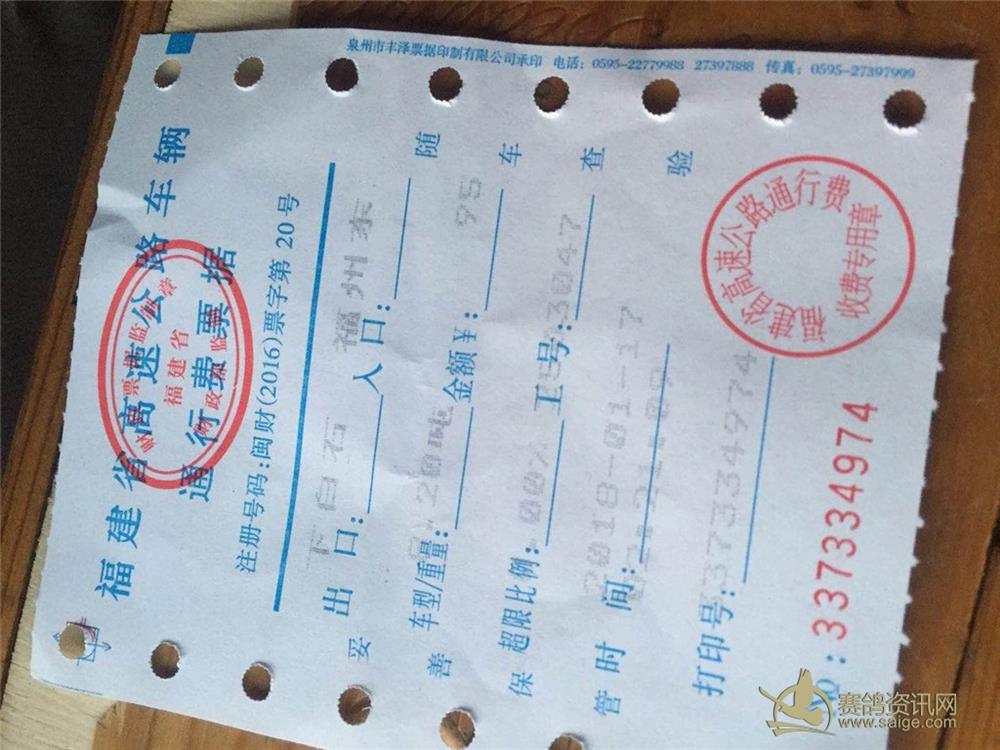 福建省高速公路车辆
通行费票据
福建省
注册号码:闽财(2016)票字第 20 号
出口: 下白石 入口: 福州东
车型/重量: 金额¥: 95
超限比例: 工号: 3047
时间: 2018-01-17
打印号: 3373334974
№: 3373334974
妥善保管 随车查验
福建省高速公路通行费
收费专用章
泉州市丰泽票据印制有限公司承印 电话: 0595-22779988 27397888 传真: 0595-27397999
赛鸽资讯网
www.saige.com